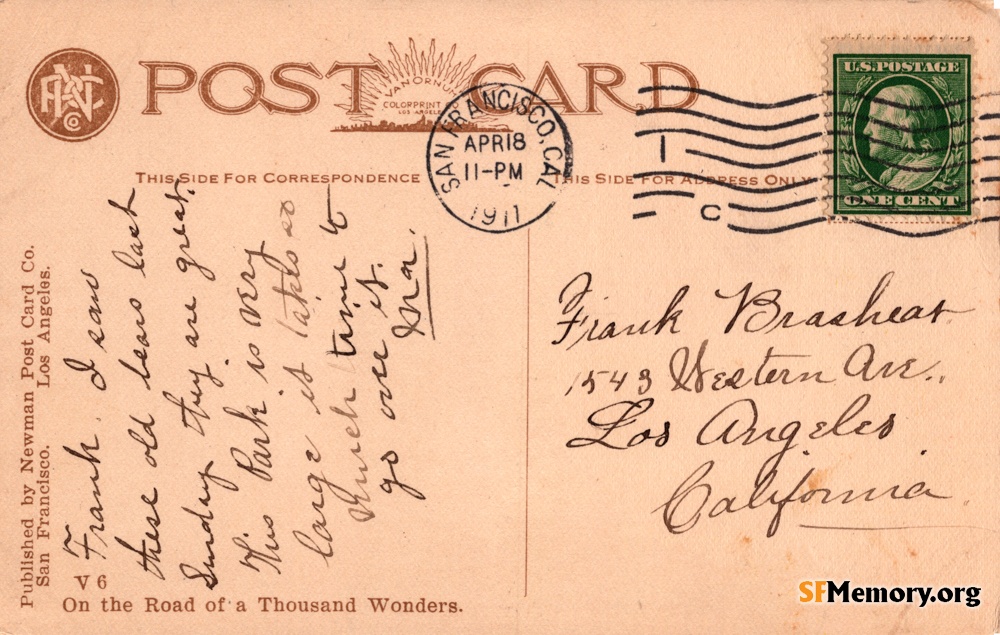 PNC Co
POST CARD
VAN ORNUM
COLORPRINT Co
LOS ANGELES
SAN FRANCISCO, CAL
APR 18
11-PM
1911
1 C
U.S. POSTAGE
ONE CENT
THIS SIDE FOR CORRESPONDENCE
THIS SIDE FOR ADDRESS ONLY
Published by Newman Post Card Co.
San Francisco. Los Angeles.
Frank. I saw
these old bears last
Sunday they are great.
This Park is very
large it takes so
much time to
go over it.
Frank Brashear
1543 Western Ave.,
Los Angeles
California.
V 6
On the Road of a Thousand Wonders.
SFMemory.org